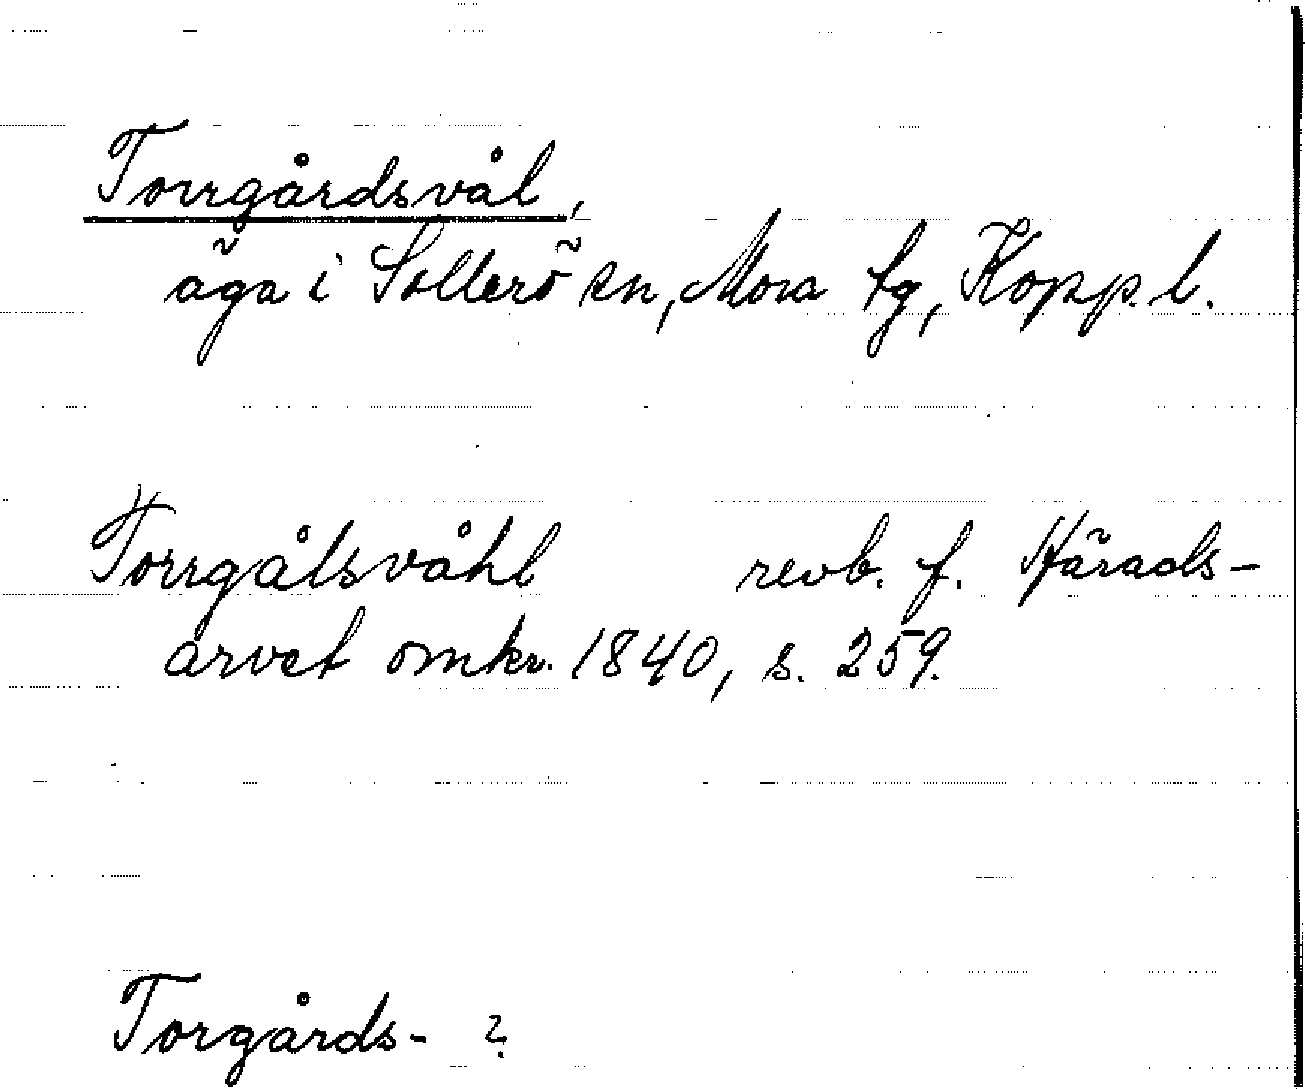 Torrgårdsvål,
äga i Sollerö sn, Mora tg, Kopp. l.
Torrgålsvåhl revb. f. Härads-
arvet omkr. 1840, s. 259.
Torgårds- ?